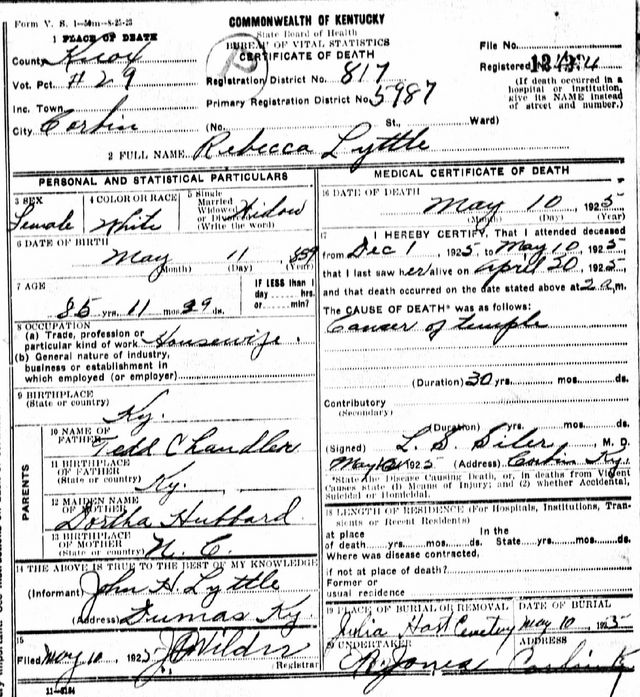 Form V. S. 1—50m—8-25-23
COMMONWEALTH OF KENTUCKY
State Board of Health
BUREAU OF VITAL STATISTICS
CERTIFICATE OF DEATH
1 PLACE OF DEATH
County Knox
Vot. Pct. #29
Inc. Town
City Corbin
Registration District No. 817
Primary Registration District No. 5987
(No. St., Ward)
File No.
Registered No.
(If death occurred in a
hospital or institution,
give its NAME instead
of street and number.)
2 FULL NAME Rebecca Lyttle
PERSONAL AND STATISTICAL PARTICULARS
3 SEX
Female
4 COLOR OR RACE
White
5 Single
Married
Widowed
or Divorced
(Write the Word)
Widow
6 DATE OF BIRTH
May 11 859
(Month) (Day) (Year)
7 AGE
85 yrs. 11 mos. 29 ds.
IF LESS than 1
day hrs.
or min?
8 OCCUPATION
(a) Trade, profession or
particular kind of work Housewife.
(b) General nature of industry,
business or establishment in
which employed (or employer)
9 BIRTHPLACE
(State or country)
Ky.
PARENTS
10 NAME OF
FATHER
Tedd Chandler
11 BIRTHPLACE
OF FATHER
(State or country)
Ky.
12 MAIDEN NAME
OF MOTHER
Dortha Hubbard
13 BIRTHPLACE
OF MOTHER
(State or country)
N. C.
14 THE ABOVE IS TRUE TO THE BEST OF MY KNOWLEDGE
(Informant) John H. Lyttle
(Address) Dumas Ky.
15
Filed May 10, 1925 Wilder
Registrar
11-5184
MEDICAL CERTIFICATE OF DEATH
16 DATE OF DEATH
May 10, 1925
(Month) (Day) (Year)
17 I HEREBY CERTIFY, That I attended deceased
from Dec 1, 1925, to May 10, 1925
that I last saw her alive on April 30, 1925,
and that death occurred on the date stated above at 2 a.m.
The CAUSE OF DEATH* was as follows:
Cancer of temple
(Duration) 30 yrs. mos. ds.
Contributory
(Secondary)
(Duration) yrs. mos. ds.
(Signed) L. S. Siler, M. D.
May 1925 (Address) Corbin Ky.
*State the Disease Causing Death, or, in deaths from Violent
Causes state (1) Means of Injury; and (2) whether Accidental,
Suicidal or Homicidal.
18 LENGTH OF RESIDENCE (For Hospitals, Institutions, Tran-
sients or Recent Residents)
at place In the
of death yrs. mos. ds. State yrs. mos. ds.
Where was disease contracted,
if not at place of death?
Former or
usual residence
19 PLACE OF BURIAL OR REMOVAL
Julia Hart Cemetery
DATE OF BURIAL
May 10, 1925
20 UNDERTAKER
Jones
ADDRESS
Corbin K